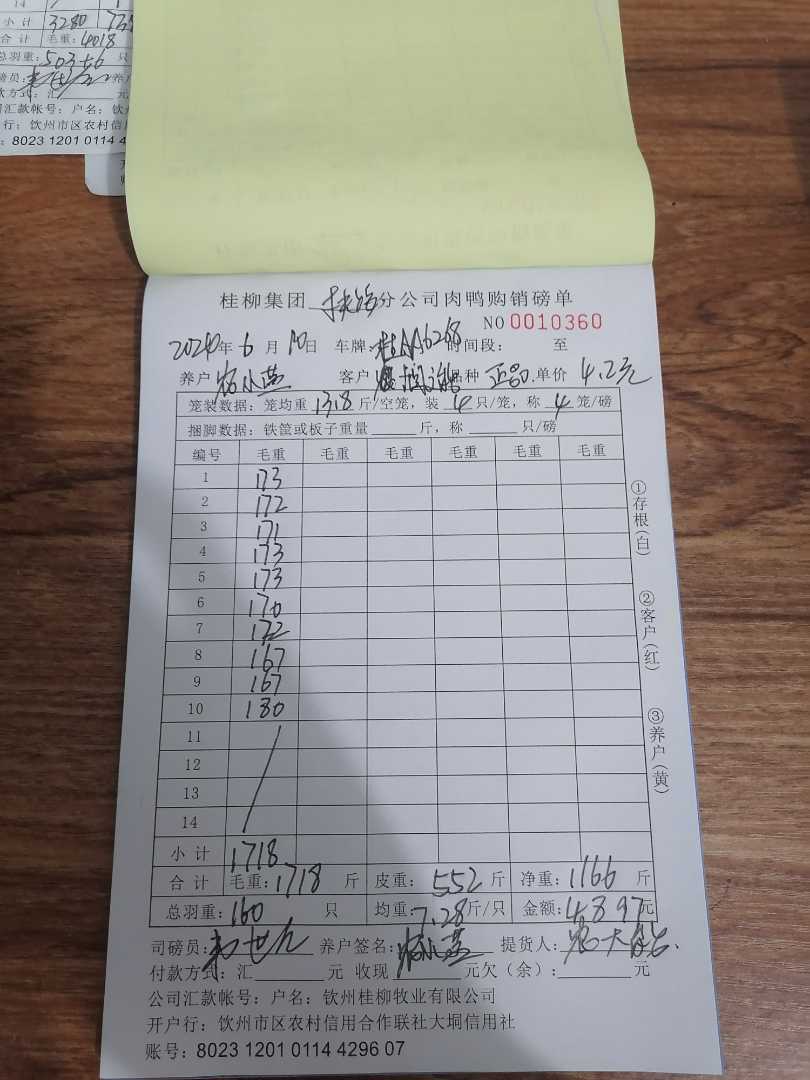 14
小 计 3280
合 计 毛重: 4018
总羽重: 503+6 只
磅员:
款方式: 汇 元
司汇款帐号: 户名: 钦
行: 钦州市区农村信用
: 8023 1201 0114 4
桂柳集团 扶绥 分公司肉鸭购销磅单
NO 0010360
2024年 6 月 10日 车牌: 桂AA6268 时间段: 至
养户 客户 品种 正品 单价 4.2元
笼装数据: 笼均重 13.8 斤/空笼, 装 4 只/笼, 称 4 笼/磅
捆脚数据: 铁筐或板子重量 斤, 称 只/磅
编号 毛重 毛重 毛重 毛重 毛重 毛重
1 173
2 172
3 171
4 173
5 173
6 170
7 172
8 167
9 167
10 180
11
12
13
14
小 计 1718
合 计 毛重: 1718 斤 皮重: 552 斤 净重: 1166 斤
总羽重: 160 只 均重: 7.28 斤/只 金额: 4897元
司磅员: 养户签名: 提货人:
付款方式: 汇 元 收现 元欠(余): 元
公司汇款帐号: 户名: 钦州桂柳牧业有限公司
开户行: 钦州市区农村信用合作联社大垌信用社
账号: 8023 1201 0114 4296 07
①存根(白)
②客户(红)
③养户(黄)